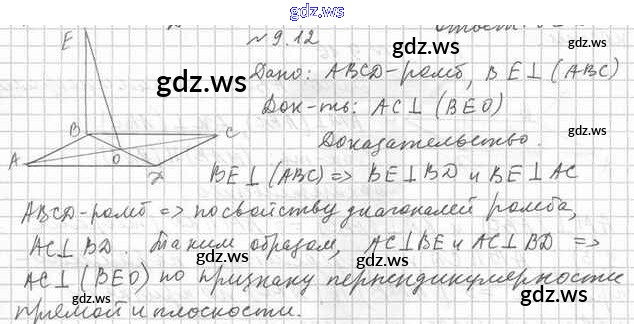 gdz.ws
№ 9.12
gdz.ws
gdz.ws
Дано: ABCD-ромб, BE⊥(ABC)
Док-ть: AC⊥(BEO)
gdz.ws
Доказательство.
BE⊥(ABC) => BE⊥BD и BE⊥AC
ABCD-ромб => по свойству диагоналей ромба,
AC⊥BD. Таким образом, AC⊥BE и AC⊥BD =>
gdz.ws
AC⊥(BEO) по признаку перпендикулярности
прямой и плоскости.
gdz.ws
gdz.ws
E
B
C
A
O
D